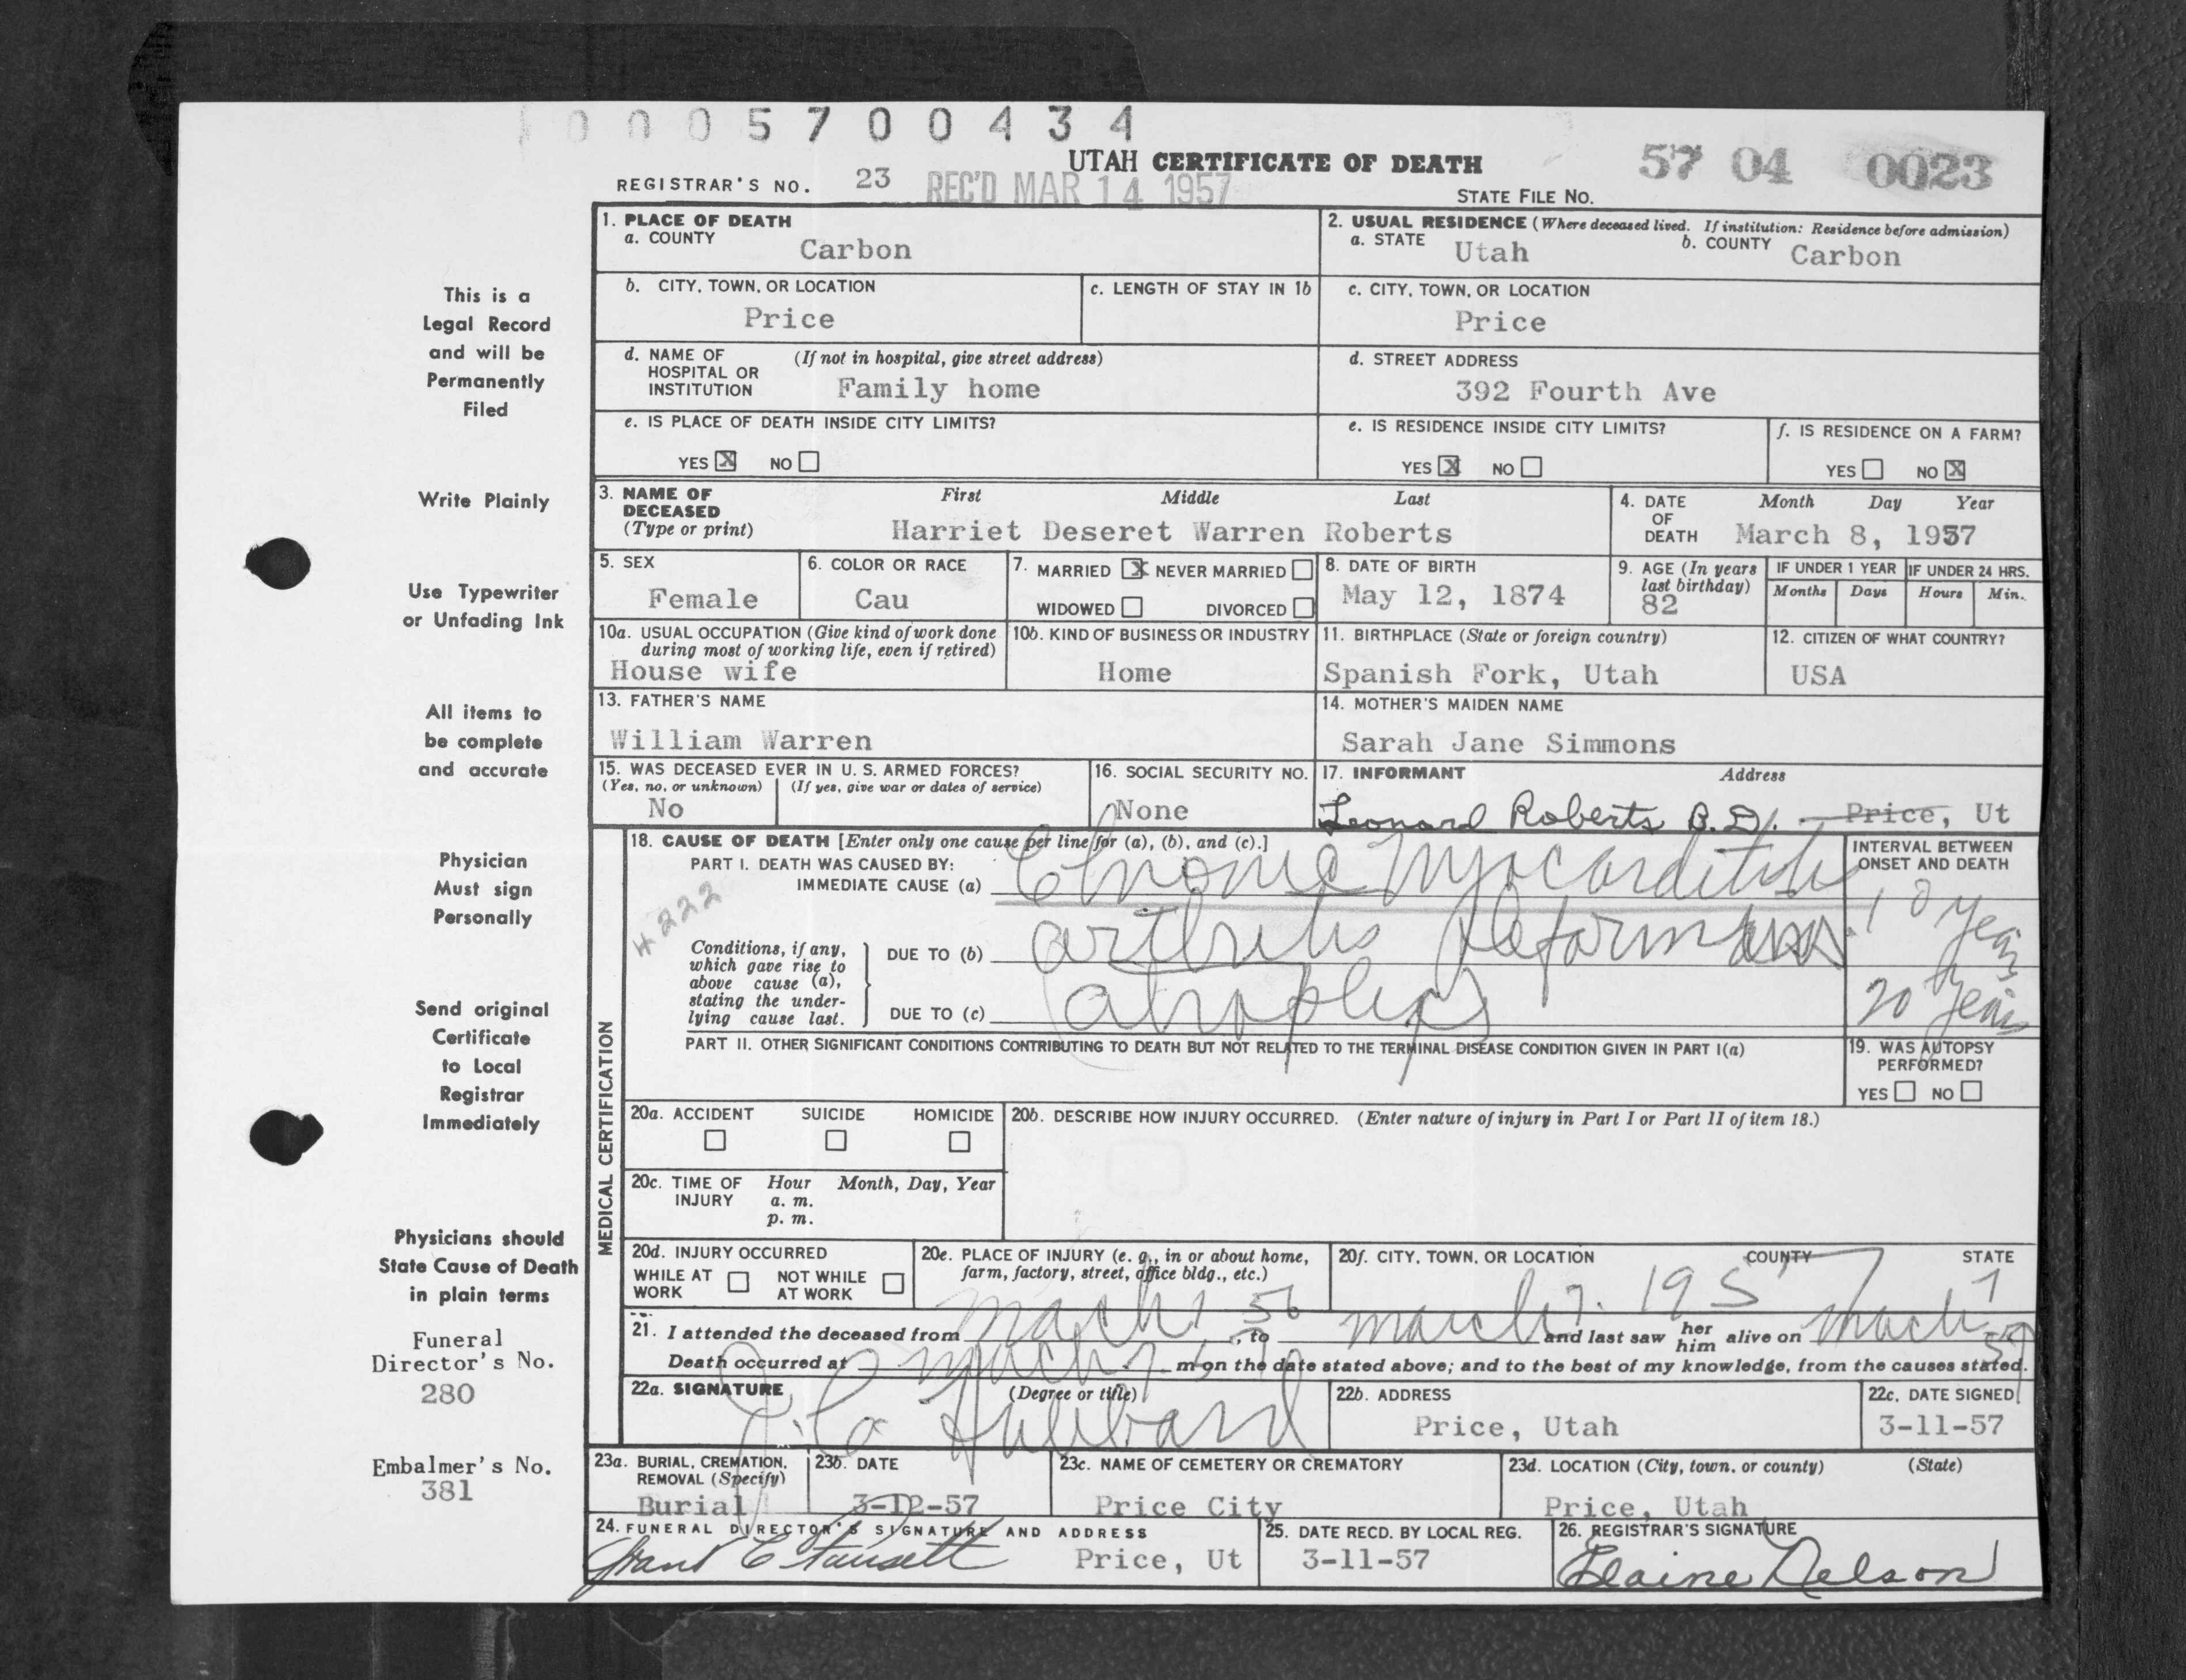 0 0 0 5 7 0 0 4 3 4
UTAH CERTIFICATE OF DEATH
57 04 0023
REGISTRAR'S NO. 23 REC'D MAR 14 1957 STATE FILE NO.
This is a
Legal Record
and will be
Permanently
Filed
Write Plainly
Use Typewriter
or Unfading Ink
All items to
be complete
and accurate
Physician
Must sign
Personally
Send original
Certificate
to Local
Registrar
Immediately
Physicians should
State Cause of Death
in plain terms
Funeral
Director's No.
280
Embalmer's No.
381
1. PLACE OF DEATH
a. COUNTY Carbon
2. USUAL RESIDENCE (Where deceased lived. If institution: Residence before admission)
a. STATE Utah b. COUNTY Carbon
b. CITY, TOWN, OR LOCATION
Price
c. LENGTH OF STAY IN 1b
c. CITY, TOWN, OR LOCATION
Price
d. NAME OF HOSPITAL OR INSTITUTION (If not in hospital, give street address)
Family home
d. STREET ADDRESS
392 Fourth Ave
e. IS PLACE OF DEATH INSIDE CITY LIMITS?
YES X NO
e. IS RESIDENCE INSIDE CITY LIMITS?
YES X NO
f. IS RESIDENCE ON A FARM?
YES NO X
3. NAME OF DECEASED (Type or print) First Middle Last
Harriet Deseret Warren Roberts
4. DATE OF DEATH Month Day Year
March 8, 1957
5. SEX
Female
6. COLOR OR RACE
Cau
7. MARRIED X NEVER MARRIED
WIDOWED DIVORCED
8. DATE OF BIRTH
May 12, 1874
9. AGE (In years last birthday)
82
IF UNDER 1 YEAR
Months Days
IF UNDER 24 HRS.
Hours Min.
10a. USUAL OCCUPATION (Give kind of work done during most of working life, even if retired)
House wife
10b. KIND OF BUSINESS OR INDUSTRY
Home
11. BIRTHPLACE (State or foreign country)
Spanish Fork, Utah
12. CITIZEN OF WHAT COUNTRY?
USA
13. FATHER'S NAME
William Warren
14. MOTHER'S MAIDEN NAME
Sarah Jane Simmons
15. WAS DECEASED EVER IN U. S. ARMED FORCES?
(Yes, no, or unknown) (If yes, give war or dates of service)
No
16. SOCIAL SECURITY NO.
None
17. INFORMANT Address
Leonard Roberts B.D. Price, Ut
MEDICAL CERTIFICATION
18. CAUSE OF DEATH [Enter only one cause per line for (a), (b), and (c).]
PART I. DEATH WAS CAUSED BY:
IMMEDIATE CAUSE (a) Chronic Myocarditis
INTERVAL BETWEEN ONSET AND DEATH
10 years
4222
Conditions, if any, which gave rise to above cause (a), stating the underlying cause last.
DUE TO (b) arthritis deformans
DUE TO (c) atrophy
20 years
PART II. OTHER SIGNIFICANT CONDITIONS CONTRIBUTING TO DEATH BUT NOT RELATED TO THE TERMINAL DISEASE CONDITION GIVEN IN PART I(a)
19. WAS AUTOPSY PERFORMED?
YES NO
20a. ACCIDENT SUICIDE HOMICIDE
20b. DESCRIBE HOW INJURY OCCURRED. (Enter nature of injury in Part I or Part II of item 18.)
20c. TIME OF INJURY Hour Month, Day, Year
a. m.
p. m.
20d. INJURY OCCURRED
WHILE AT WORK NOT WHILE AT WORK
20e. PLACE OF INJURY (e. g., in or about home, farm, factory, street, office bldg., etc.)
20f. CITY, TOWN, OR LOCATION COUNTY STATE
21. I attended the deceased from March 1 56, to March 7. 1957 and last saw her him alive on March 7 57
Death occurred at m on the date stated above; and to the best of my knowledge, from the causes stated.
22a. SIGNATURE (Degree or title)
Hubbard
22b. ADDRESS
Price, Utah
22c. DATE SIGNED
3-11-57
23a. BURIAL, CREMATION, REMOVAL (Specify)
Burial
23b. DATE
3-12-57
23c. NAME OF CEMETERY OR CREMATORY
Price City
23d. LOCATION (City, town, or county) (State)
Price, Utah
24. FUNERAL DIRECTOR'S SIGNATURE AND ADDRESS
Grant C Fausett Price, Ut
25. DATE RECD. BY LOCAL REG.
3-11-57
26. REGISTRAR'S SIGNATURE
Elaine Nelson